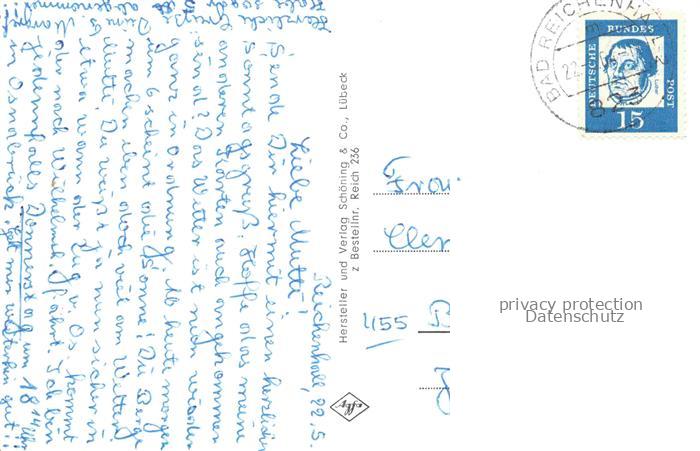 Reichenhall, 22.5.
Liebe Mutti!
Sende Dir hiermit einen herzlichen
Sonntagsgruß. Hoffe dass meine
anderen Karten auch angekommen
sind? Das Wetter ist nun wieder
ganz in Ordnung. Ab heute morgen
um 6 scheint die Sonne! Die Berge
machen eben doch viel am Wetter
Mutti Du weißt ja nun sicher in
etwa wann der Zug v. Os. kommt
oder nach Wilhelmh. fährt. Ich bin
jedenfalls Donnerstag um 18 Uhr
in Osnabrück.
Herzliche Grüße
Deine
abgenommen
Hersteller und Verlag Schöning & Co., Lübeck
z Bestellnr. Reich 236
Frau
Clem
455 B
BAD REICHENHALL
22.
DEUTSCHE BUNDESPOST
15
privacy protection
Datenschutz